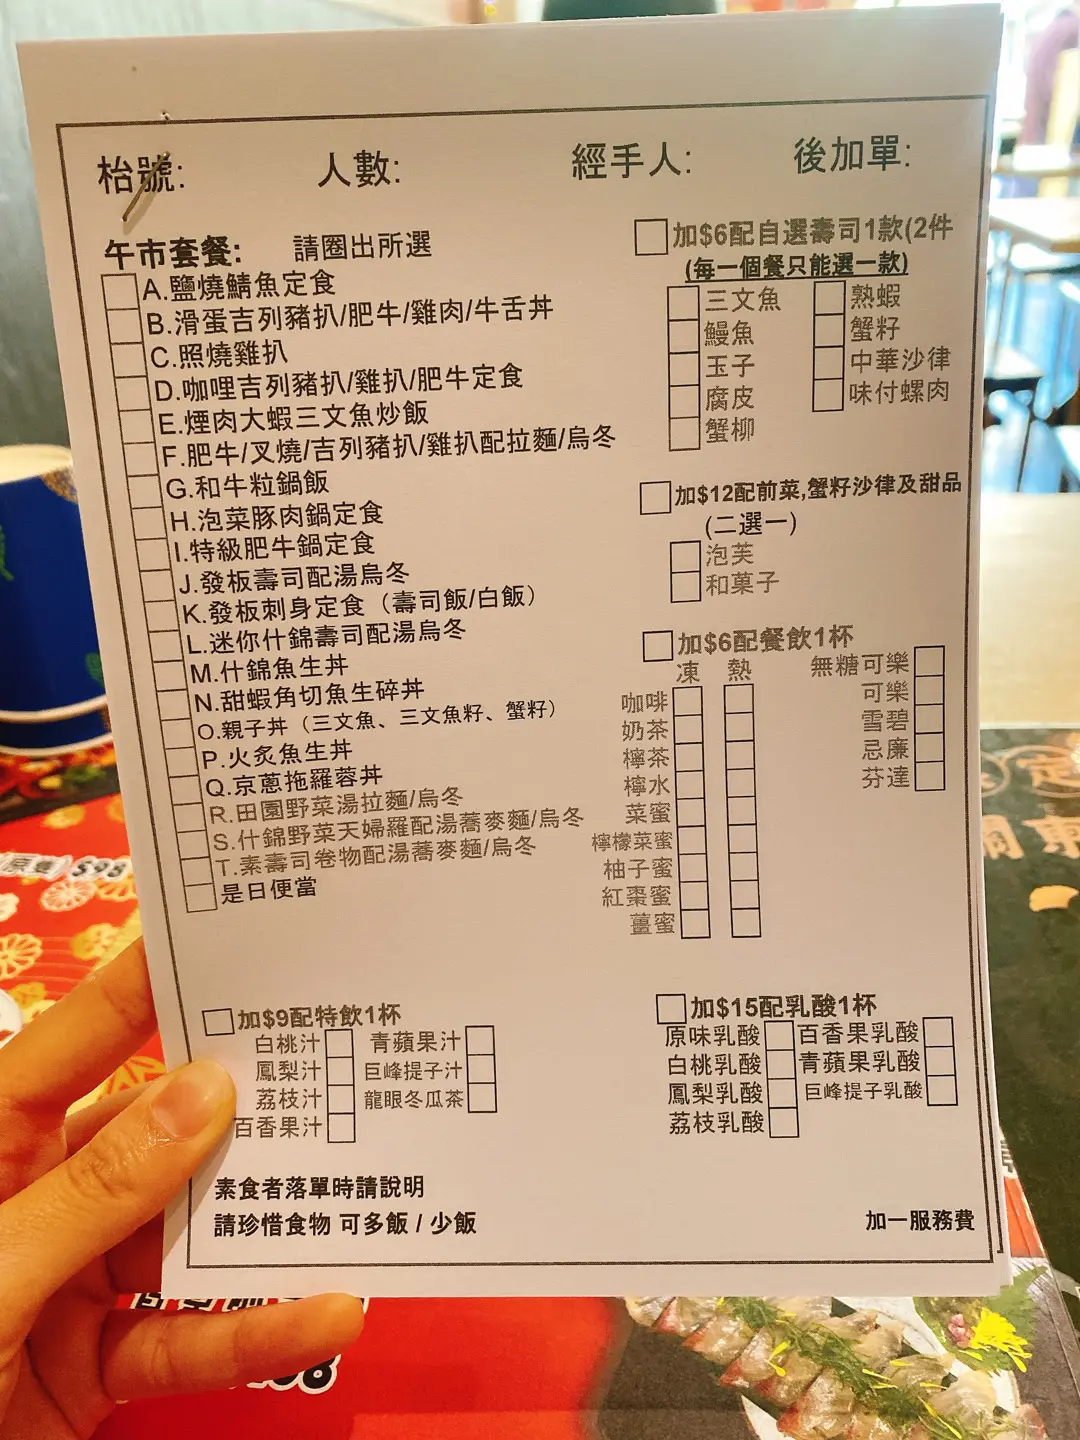 枱號: 人數: 經手人: 後加單:
午市套餐: 請圈出所選
A.鹽燒鯖魚定食
B.滑蛋吉列豬扒/肥牛/雞肉/牛舌丼
C.照燒雞扒
D.咖哩吉列豬扒/雞扒/肥牛定食
E.煙肉大蝦三文魚炒飯
F.肥牛/叉燒/吉列豬扒/雞扒配拉麵/烏冬
G.和牛粒鍋飯
H.泡菜豚肉鍋定食
I.特級肥牛鍋定食
J.發板壽司配湯烏冬
K.發板刺身定食（壽司飯/白飯）
L.迷你什錦壽司配湯烏冬
M.什錦魚生丼
N.甜蝦角切魚生碎丼
O.親子丼（三文魚、三文魚籽、蟹籽）
P.火炙魚生丼
Q.京蔥拖羅蓉丼
R.田園野菜湯拉麵/烏冬
S.什錦野菜天婦羅配湯蕎麥麵/烏冬
T.素壽司卷物配湯蕎麥麵/烏冬
是日便當
加$6配自選壽司1款(2件
(每一個餐只能選一款)
三文魚 熟蝦
鰻魚 蟹籽
玉子 中華沙律
腐皮 味付螺肉
蟹柳
加$12配前菜,蟹籽沙律及甜品
(二選一)
泡芙
和菓子
加$6配餐飲1杯
凍 熱
咖啡
奶茶
檸茶
檸水
菜蜜
檸檬菜蜜
柚子蜜
紅棗蜜
薑蜜
無糖可樂
可樂
雪碧
忌廉
芬達
加$9配特飲1杯
白桃汁 青蘋果汁
鳳梨汁 巨峰提子汁
荔枝汁 龍眼冬瓜茶
百香果汁
加$15配乳酸1杯
原味乳酸 百香果乳酸
白桃乳酸 青蘋果乳酸
鳳梨乳酸 巨峰提子乳酸
荔枝乳酸
素食者落單時請說明
請珍惜食物 可多飯 / 少飯
加一服務費
$98